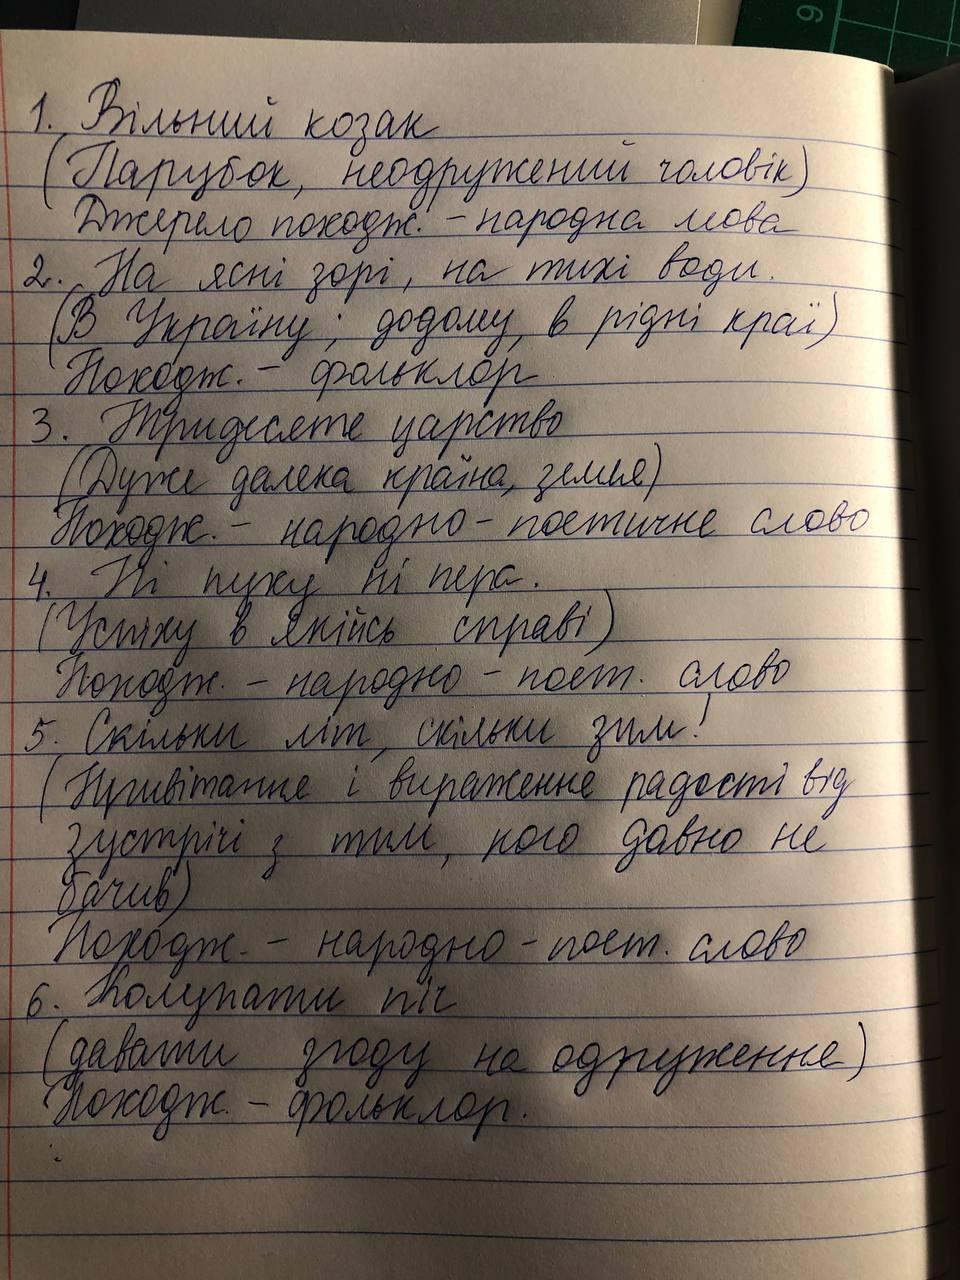 1. Вільний козак
(Парубок, неодружений чоловік)
Джерело походж. – народна мова
2. На ясні зорі, на тихі води.
(В Україну; додому, в рідні краї)
Походж. – фольклор
3. Тридесяте царство
(Дуже далека країна, земля)
Походж. – народно-поетичне слово
4. Ні пуху ні пера.
(Успіху в якійсь справі)
Походж. – народно-поет. слово
5. Скільки літ, скільки зим!
(Привітання і вираження радості від
зустрічі з тим, кого давно не
бачив)
Походж. – народно-поет. слово
6. Колупати піч
(давати згоду на одруження)
Походж. – фольклор.
9